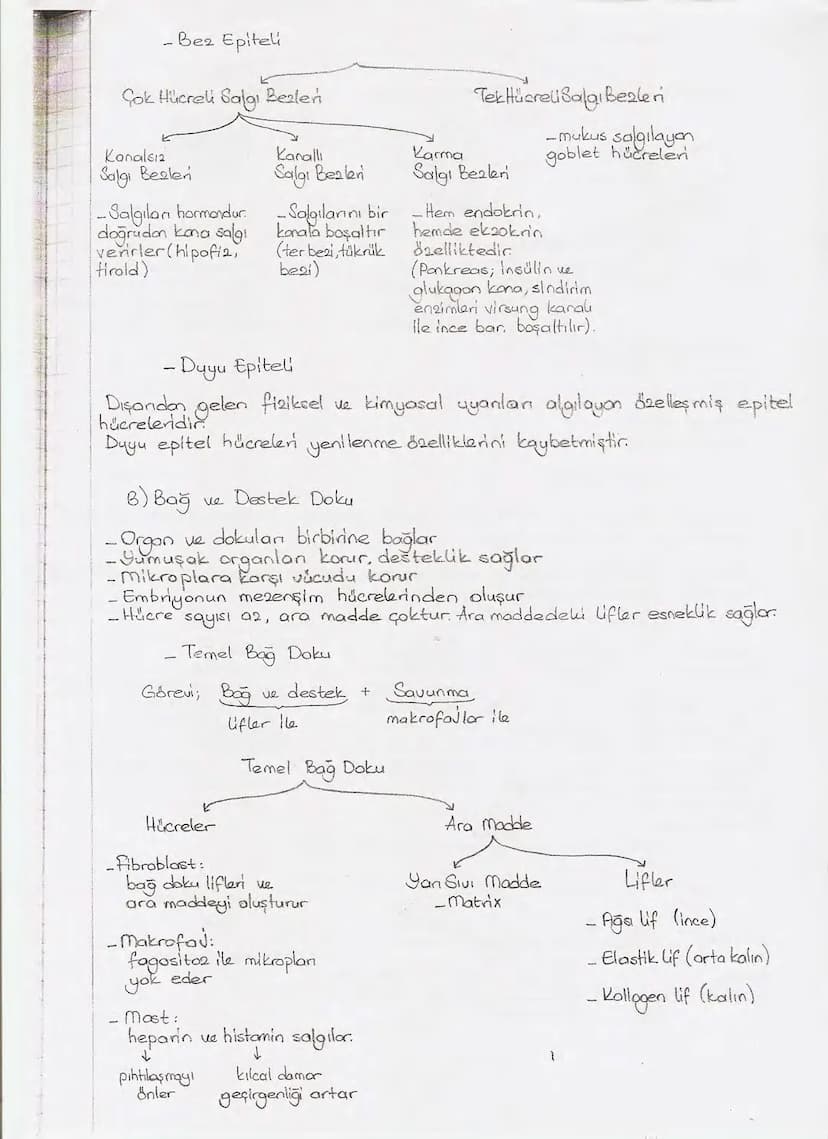 - Bez Epiteli
Çok Hücreli Salgı Bezleri
Tek Hücreli Salgı Bezleri
- mukus salgılayan
goblet hücreleri
Kanalsız
Salgı Bezleri
- Salgıları hormondur.
doğrudan kana salgı
verirler (hipofiz,
tiroid)
Kanallı
Salgı Bezleri
- Salgılarını bir
kanala boşaltır
(ter bezi, tükrük
bezi)
Karma
Salgı Bezleri
- Hem endokrin,
hemde ekzokrin
özelliktedir.
(Pankreas; insülin ve
glukagon kana, sindirim
enzimleri virsung kanalı
ile ince bar. boşaltılır).
- Duyu Epiteli
Dışarıdan gelen fiziksel ve kimyasal uyarıları algılayan özelleşmiş epitel
hücreleridir.
Duyu epitel hücreleri yenilenme özelliklerini kaybetmiştir.
B) Bağ ve Destek Doku
- Organ ve dokuları birbirine bağlar
- Yumuşak organları korur, desteklik sağlar
- Mikroplara karşı vücudu korur
- Embriyonun mezenşim hücrelerinden oluşur
- Hücre sayısı az, ara madde çoktur. Ara maddedeki lifler esneklik sağlar.
- Temel Bağ Doku
Görevi; Bağ ve destek + Savunma
lifler ile makrofajlar ile
Temel Bağ Doku
Hücreler
- Fibroblast:
bağ doku lifleri ve
ara maddeyi oluşturur
- Makrofaj:
fagositoz ile mikropları
yok eder
- Mast:
heparin ve histamin salgılar.
pıhtılaşmayı
önler
kılcal damar
geçirgenliği artar
Ara Madde
Yarı Sıvı Madde
- Matrix
Lifler
- Ağsı lif (ince)
- Elastik lif (orta kalın)
- Kollogen lif (kalın)
1